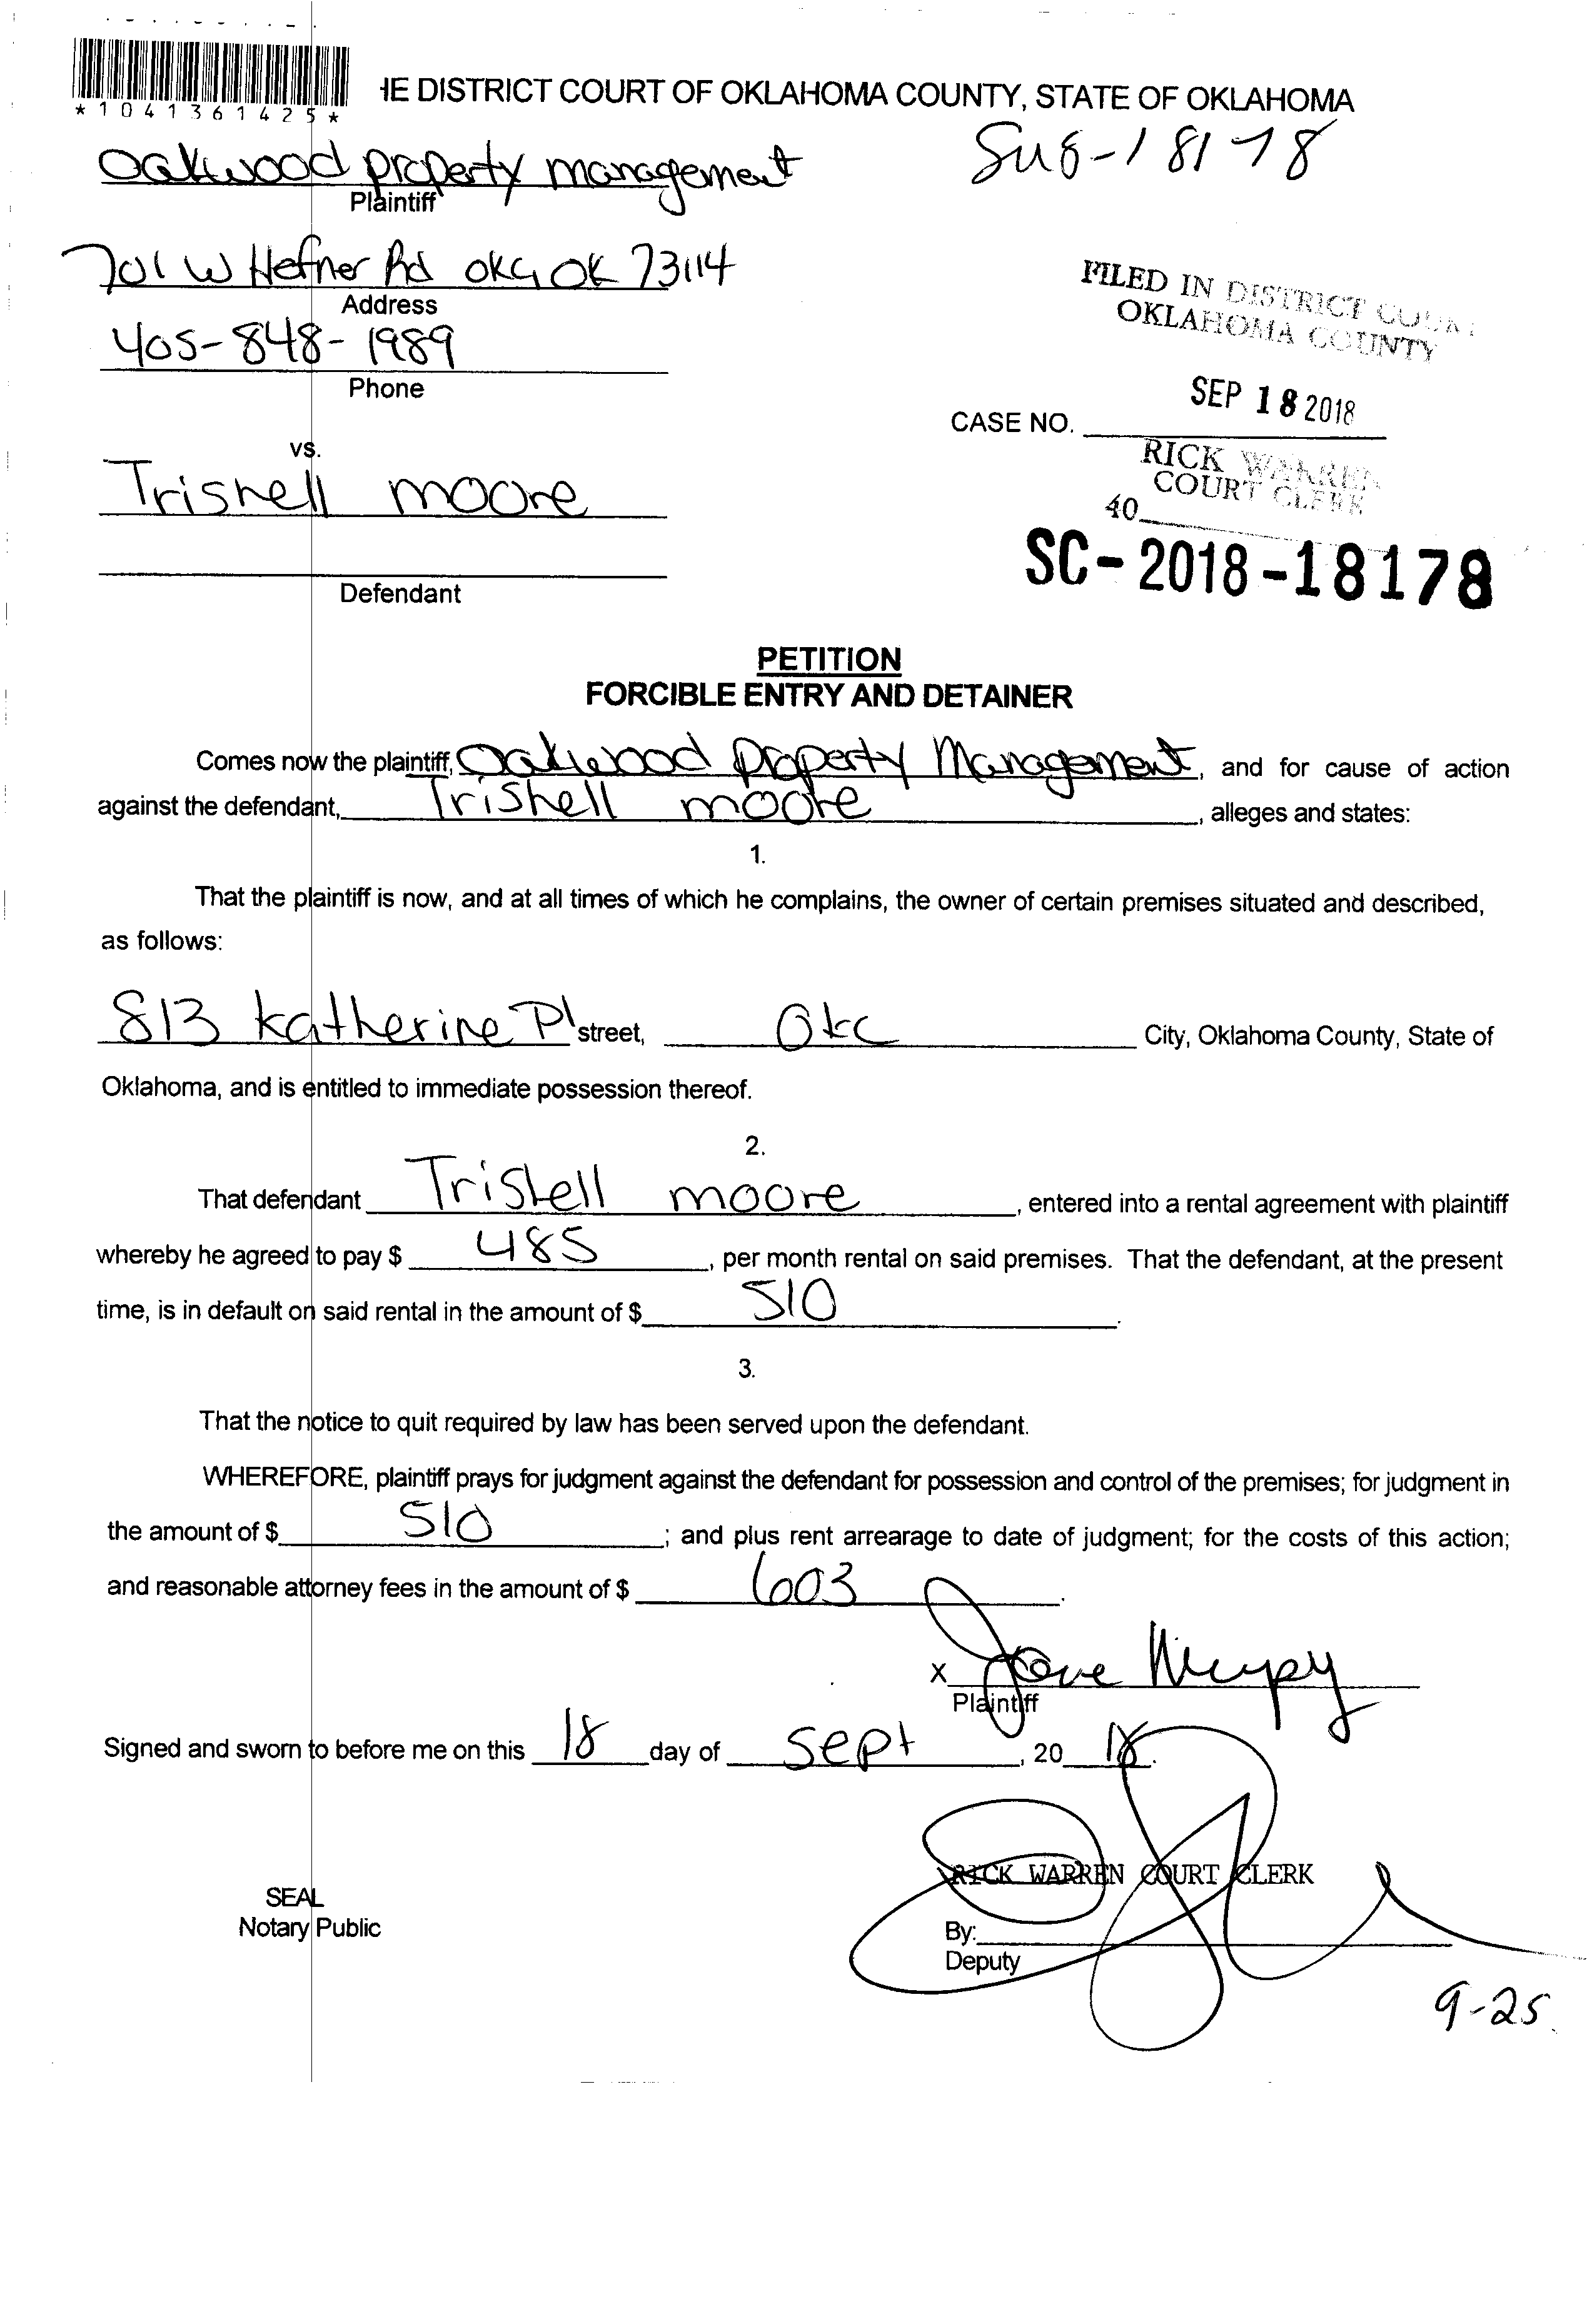 *1041361425*
HE DISTRICT COURT OF OKLAHOMA COUNTY, STATE OF OKLAHOMA
Oakwood property management
Plaintiff
701 W Hefner Rd OKC, OK 73114
Address
405-848-1989
Phone
FILED IN DISTRICT COURT
OKLAHOMA COUNTY
SEP 18 2018
CASE NO.
RICK WARREN
COURT CLERK
40
SC-2018-18178
vs.
Trishell moore
Defendant
PETITION
FORCIBLE ENTRY AND DETAINER
Comes now the plaintiff, Oakwood Property Management, and for cause of action
against the defendant, Trishell moore, alleges and states:
1.
That the plaintiff is now, and at all times of which he complains, the owner of certain premises situated and described,
as follows:
813 Katherine Pl street, OKC City, Oklahoma County, State of
Oklahoma, and is entitled to immediate possession thereof.
2.
That defendant Trishell moore, entered into a rental agreement with plaintiff
whereby he agreed to pay $ 485, per month rental on said premises. That the defendant, at the present
time, is in default on said rental in the amount of $ 510.
3.
That the notice to quit required by law has been served upon the defendant.
WHEREFORE, plaintiff prays for judgment against the defendant for possession and control of the premises; for judgment in
the amount of $ 510; and plus rent arrearage to date of judgment; for the costs of this action;
and reasonable attorney fees in the amount of $ 603.
X
Plaintiff
Signed and sworn to before me on this 18 day of Sept, 20 18.
RICK WARREN COURT CLERK
SEAL
Notary Public
By:
Deputy
9-25